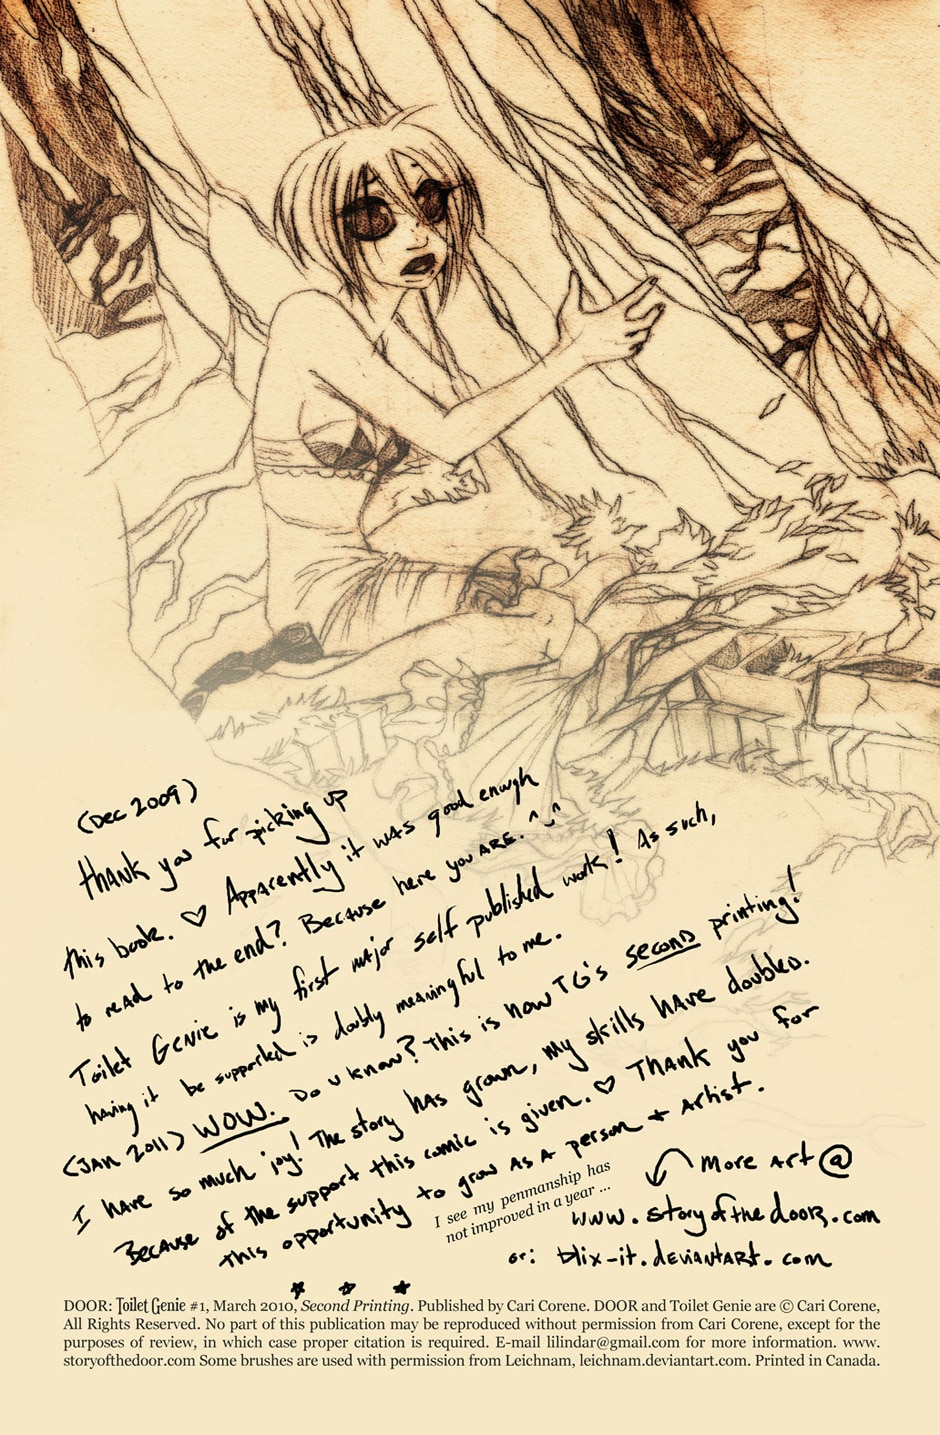 (Dec 2009)
Thank you for picking up
this book. ♡ Apparently it was good enough
to read to the end? Because here you are. ^‿^
Toilet Genie is my first major self published work! As such,
having it be supported is doubly meaningful to me.
(Jan 2011) WOW. Do u know? This is now TG's second printing!
I have so much joy! The story has grown, my skills have doubled.
Because of the support this comic is given. ♡ Thank you for
this opportunity to grow as a person + artist.
I see my penmanship has
not improved in a year ...
More art @
www.storyofthedoor.com
or: blix-it.deviantart.com
DOOR: Toilet Genie #1, March 2010, Second Printing. Published by Cari Corene. DOOR and Toilet Genie are © Cari Corene,
All Rights Reserved. No part of this publication may be reproduced without permission from Cari Corene, except for the
purposes of review, in which case proper citation is required. E-mail lilindar@gmail.com for more information. www.
storyofthedoor.com Some brushes are used with permission from Leichnam, leichnam.deviantart.com. Printed in Canada.